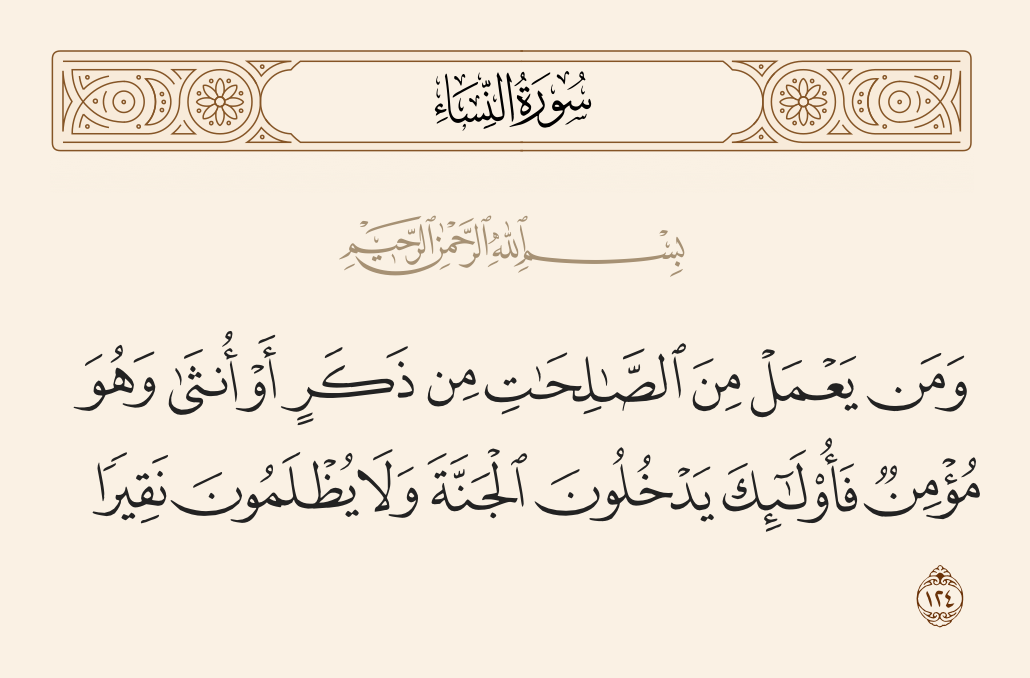 سُورَةُ النِّسَاءِ
بِسْمِ ٱللَّهِ ٱلرَّحْمَٰنِ ٱلرَّحِيمِ
وَمَن يَعْمَلْ مِنَ ٱلصَّٰلِحَٰتِ مِن ذَكَرٍ أَوْ أُنثَىٰ وَهُوَ
مُؤْمِنٌ فَأُو۟لَٰٓئِكَ يَدْخُلُونَ ٱلْجَنَّةَ وَلَا يُظْلَمُونَ نَقِيرًا
١٢٤